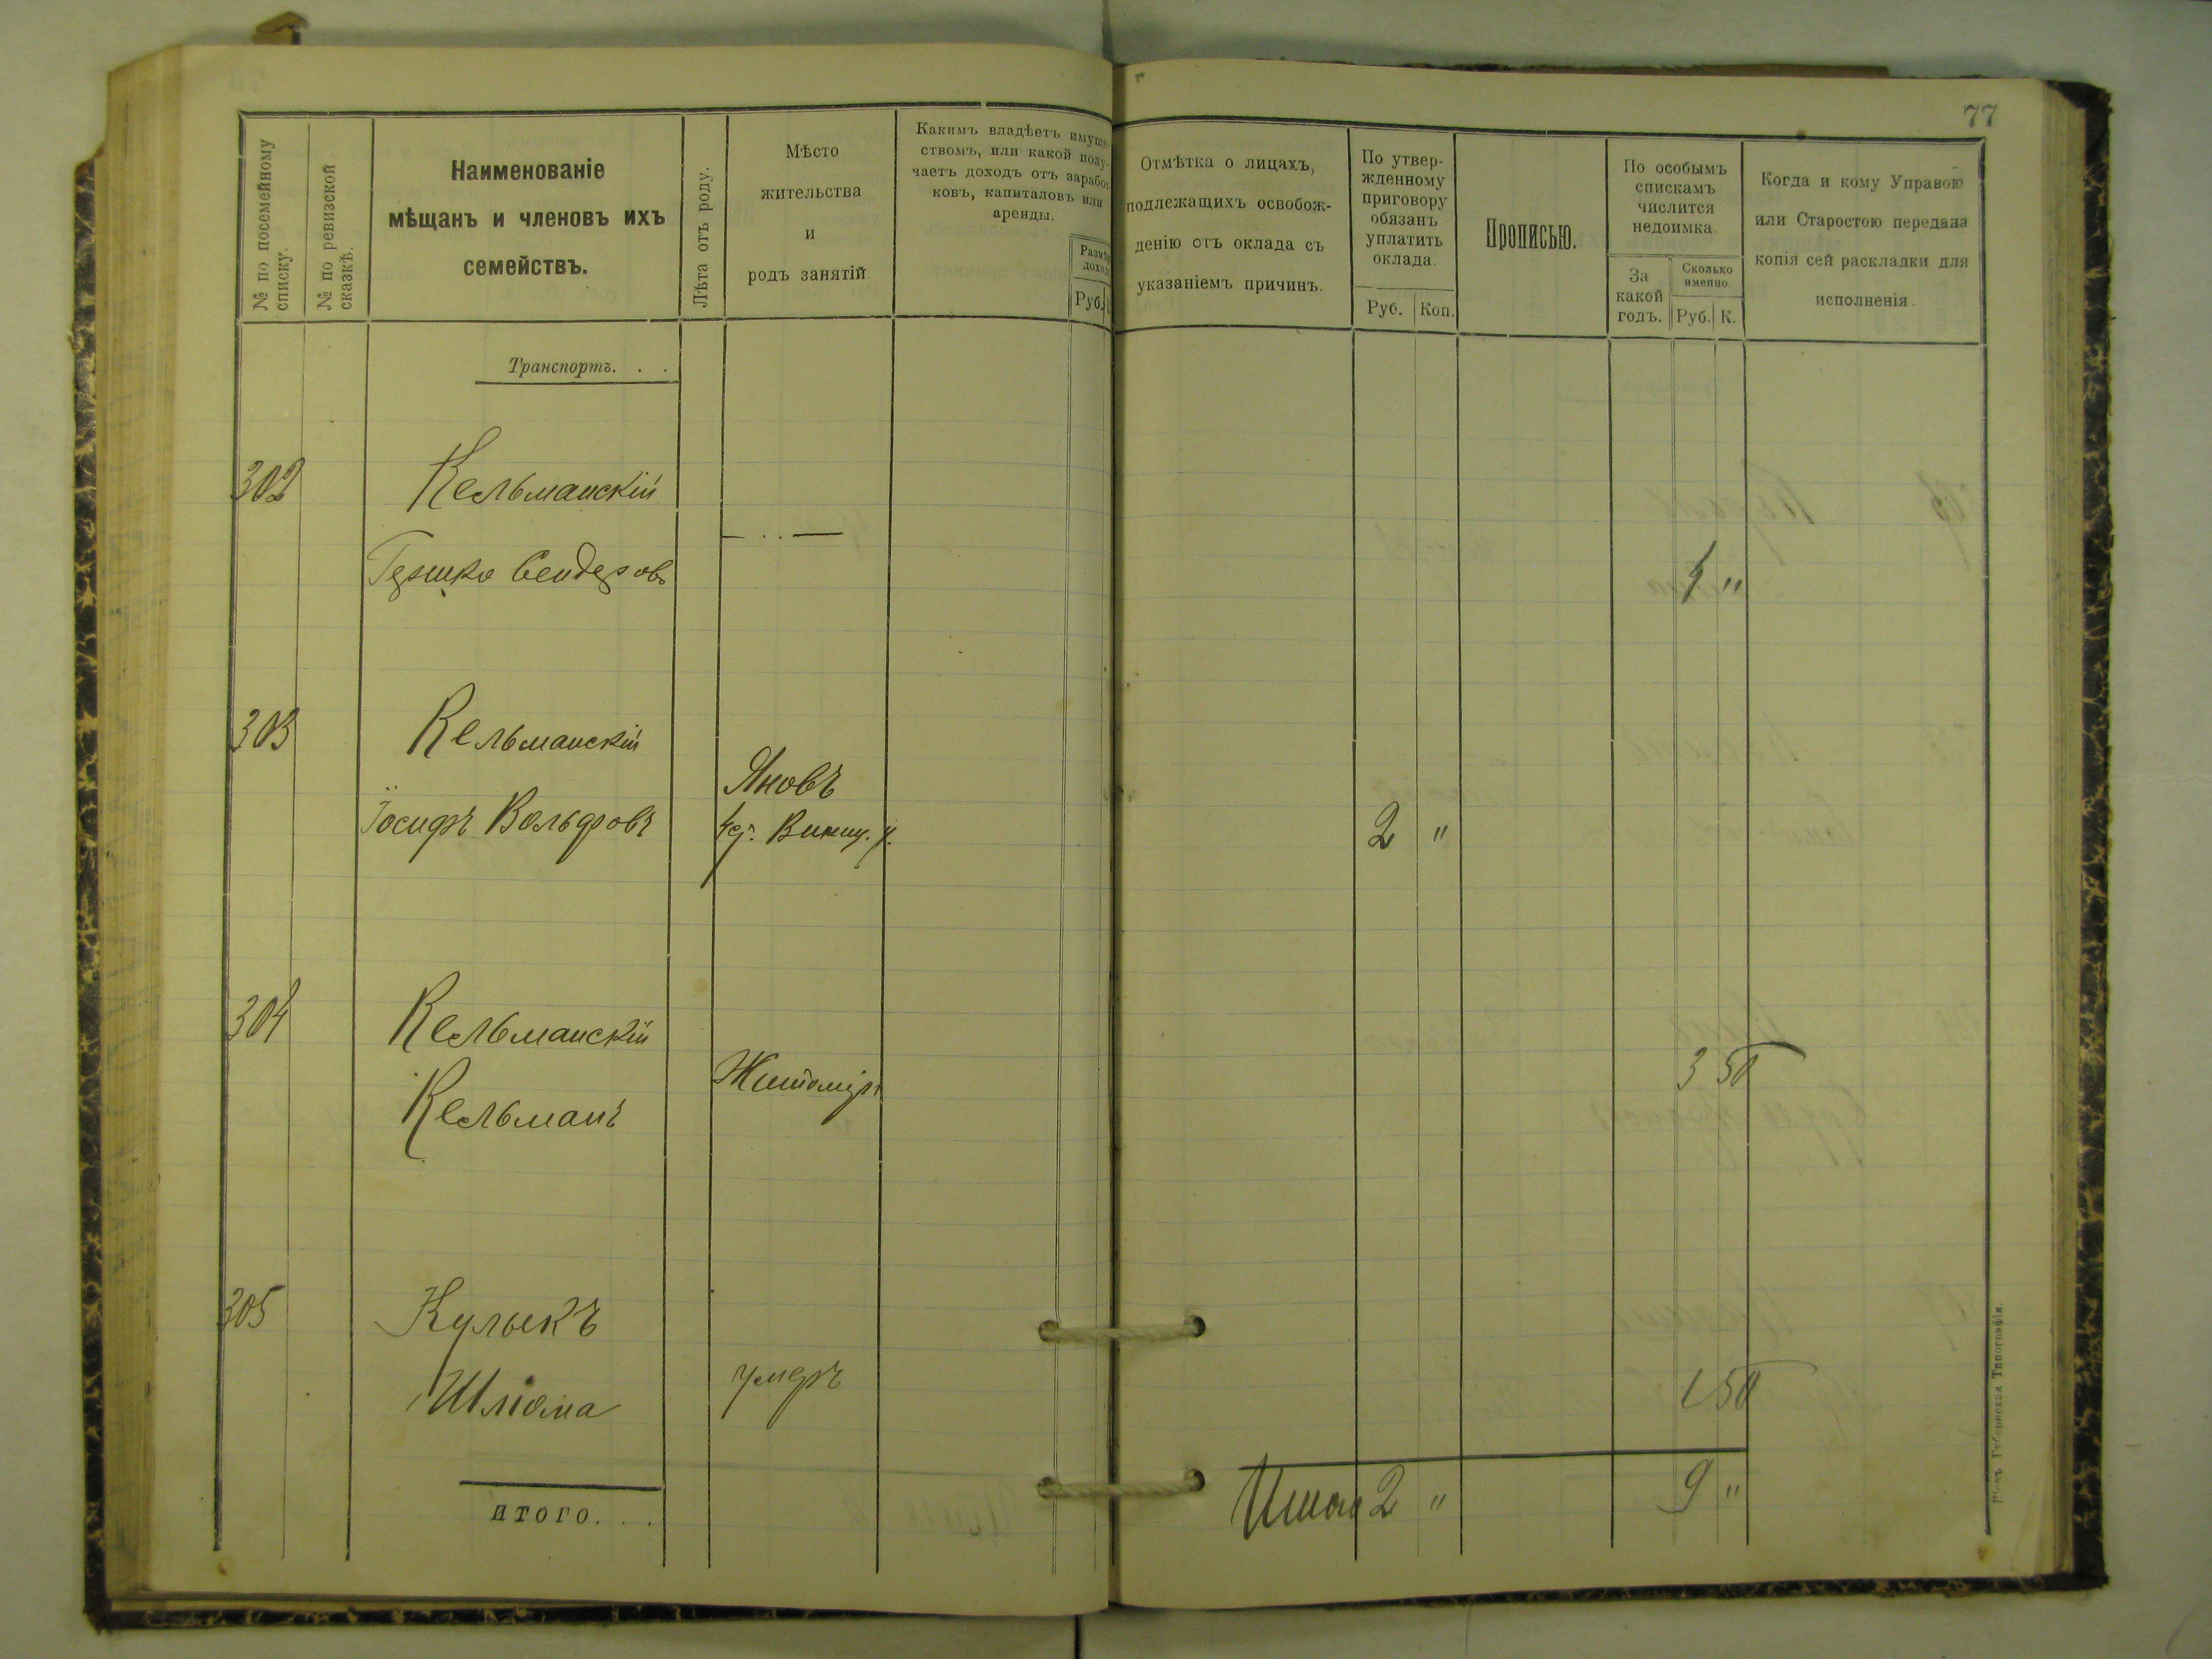 77
№ по посемейному
списку.
№ по ревизской
сказкѣ.
Наименованіе
мѣщанъ и членовъ ихъ
семействъ.
Лѣта отъ роду.
Мѣсто
жительства
и
родъ занятій.
Какимъ владѣетъ имуще-
ствомъ, или какой полу-
чаетъ доходъ отъ заработ
ковъ, капиталовъ или
аренды.
Размѣръ
дохода
Руб.
Отмѣтка о лицахъ,
подлежащихъ освобож-
денію отъ оклада съ
указаніемъ причинъ.
По утвер-
жденному
приговору
обязанъ
уплатить
оклада.
Руб. Коп.
Прописью.
По особымъ
спискамъ
числится
недоимка.
За
какой
годъ.
Сколько
именно.
Руб. К.
Когда и кому Управою
или Старостою передана
копія сей раскладки для
исполненія.
Транспортъ. . .
302 Кельманскій
Гершко Сендеровъ 4 "
303 Кельманскій
Яновъ
Іосифъ Вольфовъ Виниц. у. 2 "
304 Кельманскій
Кельманъ Житоміръ 3 50
305 Кулыкъ
Шліома умеръ 1 50
итого. . . Итого 2 " 9 "
Губернская Типографія.